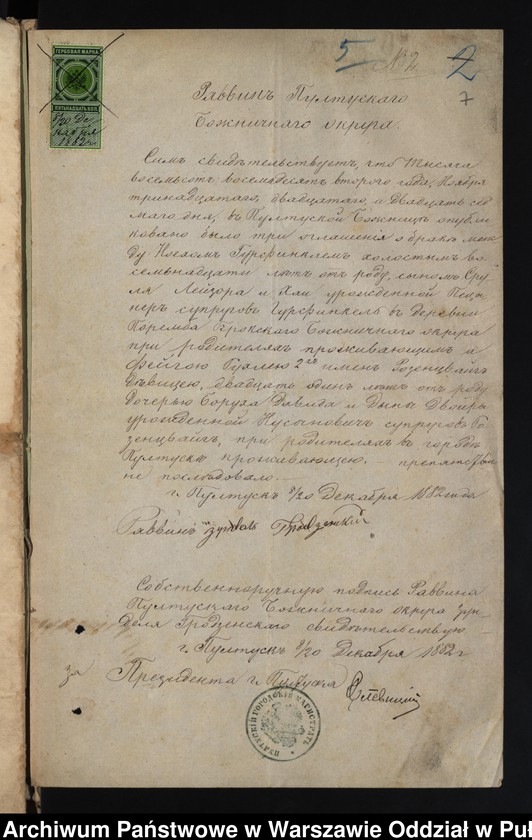 5 № 2 2
7
ГЕРБОВАЯ МАРКА
ПЯТЬНАДЦАТЬ КОП.
8/20 Де
кабря
1882 г
Раввинъ Пултускаго
Божничнаго округа.
Симъ свидѣтельствуетъ, что тысяча
восемьсотъ восемьдесятъ второго года, Ноября
тринадцатаго, двадцатаго и двадцать седь
маго дня, въ Пултуской Божницѣ опубли
ковано было три оглашенія о бракѣ меж
ду Гурфинкелемъ холостымъ во
семьнадцати лѣтъ отъ роду, сыномъ Сру
ля Лейзора и Хаи урожденной
супруговъ Гурфинкель въ деревни
Поремба Божничнаго округа
при родителяхъ проживающимъ и
Фейгою 2хъ именъ Розенцвайгъ
дѣвицею, двадцать одинъ лѣтъ отъ роду
дочерью Боруха Давида и Двойры
урожденной супруговъ Ро
зенцвайгъ, при родителяхъ въ городѣ
Пултускѣ проживающею. — препятствій
не послѣдовало. —
г. Пултускъ 8/20 Декабря 1882 года
Раввинъ
Собственноручную подпись Раввина
Пултускаго Божничнаго округа Зун
деля Гродзенскаго свидѣтельствую —
г. Пултускъ 8/20 Декабря 1882 г
за Президента г. Пултуска
ПУЛТУСКІЙ ГОРОДСКІЙ МАГИСТРАТЪ
Archiwum Państwowe w Warszawie Oddział w Puł